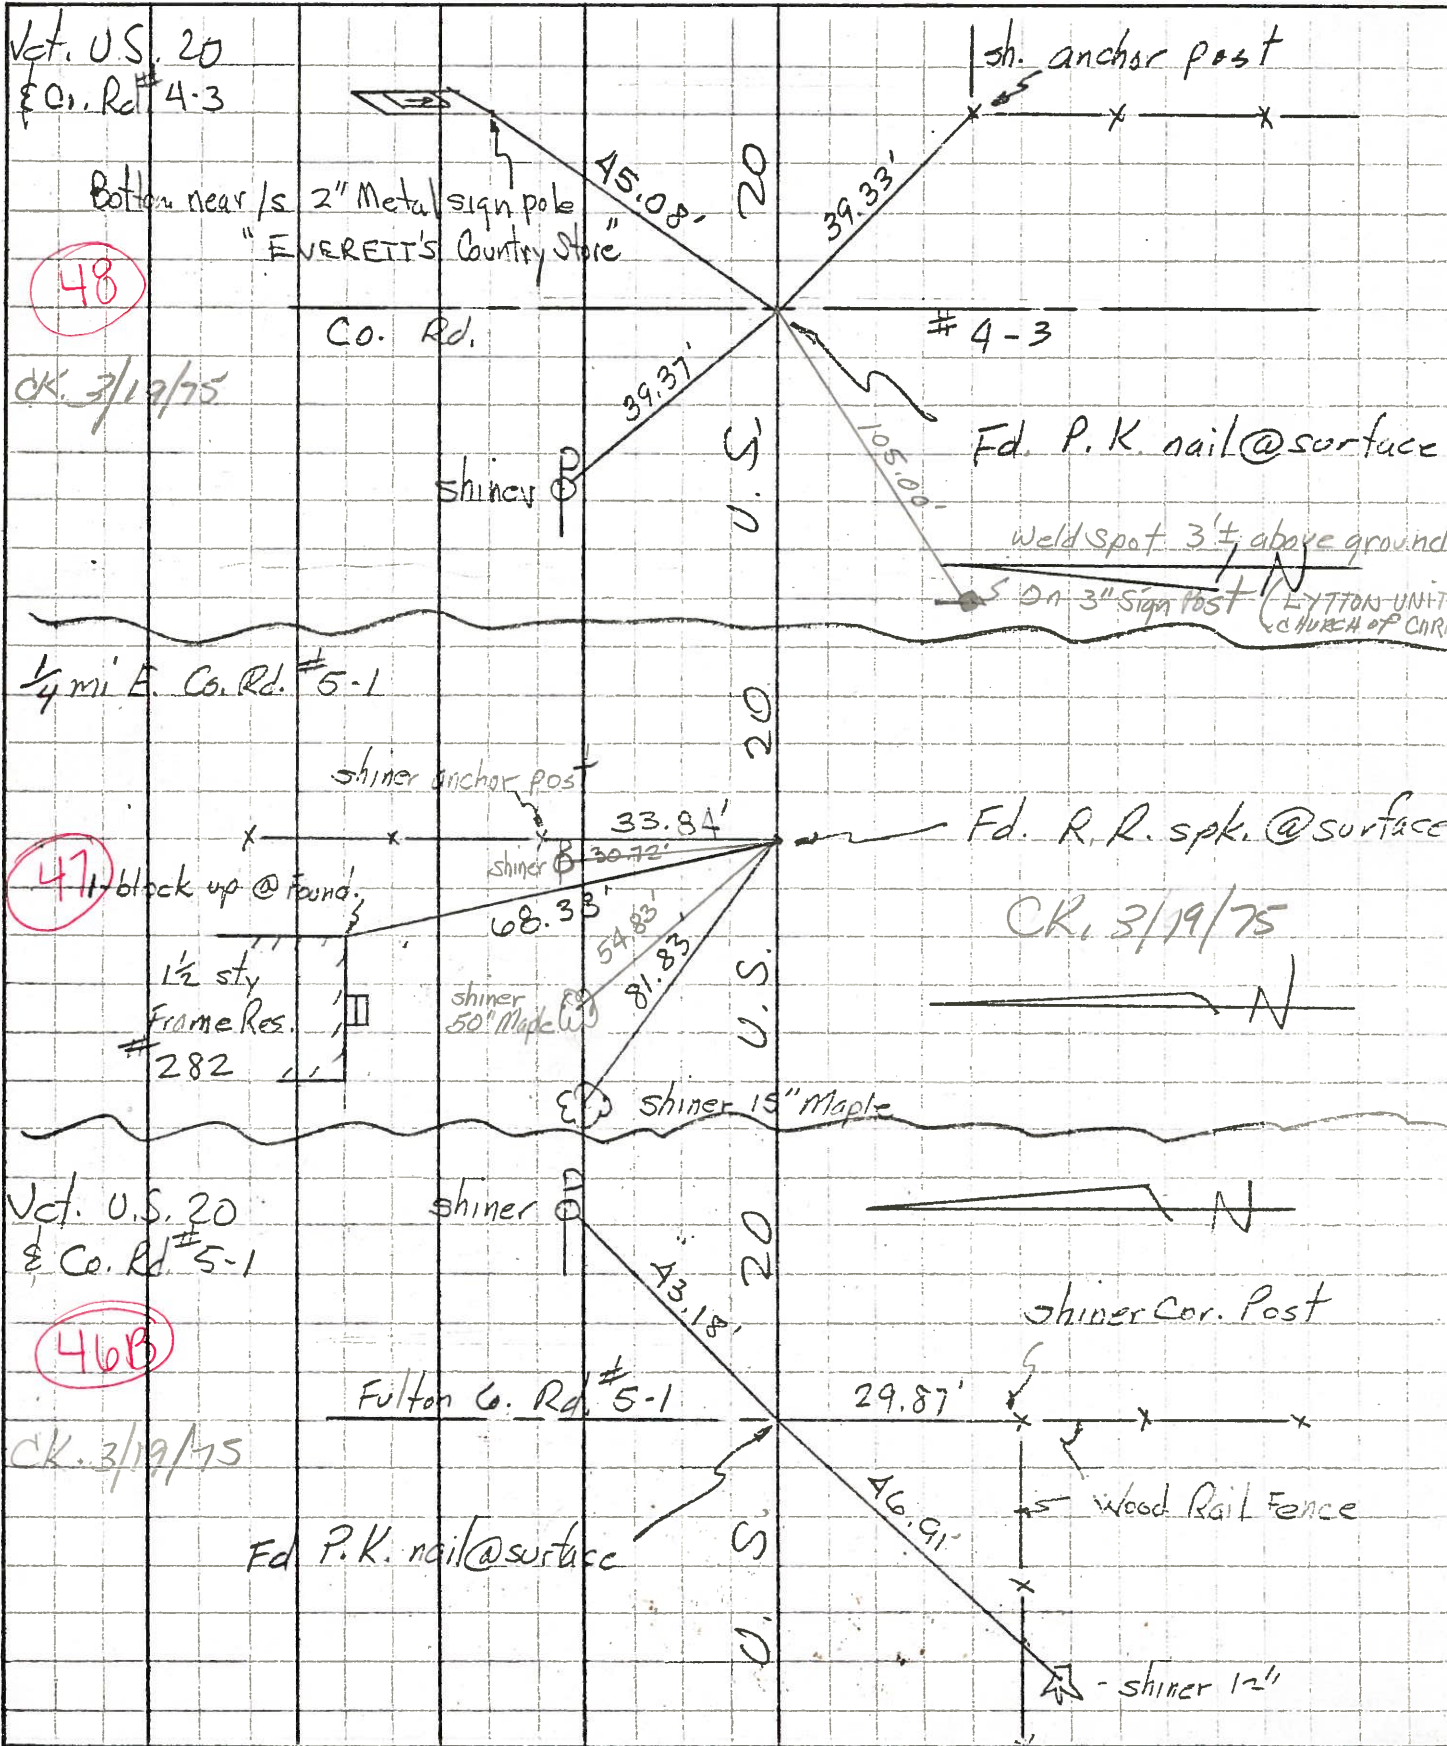 Jct. U.S. 20
& Co. Rd # 4-3
sh. anchor post
Bottom near /s 2" Metal sign pole
"EVERETT'S Country Store"
45.08'
20
39.33'
48
Co. Rd.
# 4-3
CK. 3/19/75
39.37'
shiner
U.S.
105.00'
Fd. P.K. nail @ surface
Weld spot 3'± above ground
N
On 3" Sign Post (LYTTON UNIT
CHURCH OF CHRI
1/4 mi E. Co. Rd. # 5-1
20
shiner anchor post
33.84'
Fd. R.R. spk. @ surface
shiner
30.72'
47
1-block up @ Found.
68.33'
CK. 3/19/75
54.83'
81.83'
U.S.
1½ sty
Frame Res.
# 282
shiner
50" Maple
N
shiner 15" Maple
Jct. U.S. 20
& Co. Rd # 5-1
shiner
20
N
43.18'
46B
shiner Cor. Post
Fulton Co. Rd. # 5-1
29.87'
CK. 3/19/75
46.91'
Wood Rail Fence
Fd P.K. nail @ surface
U.S.
- shiner 12"